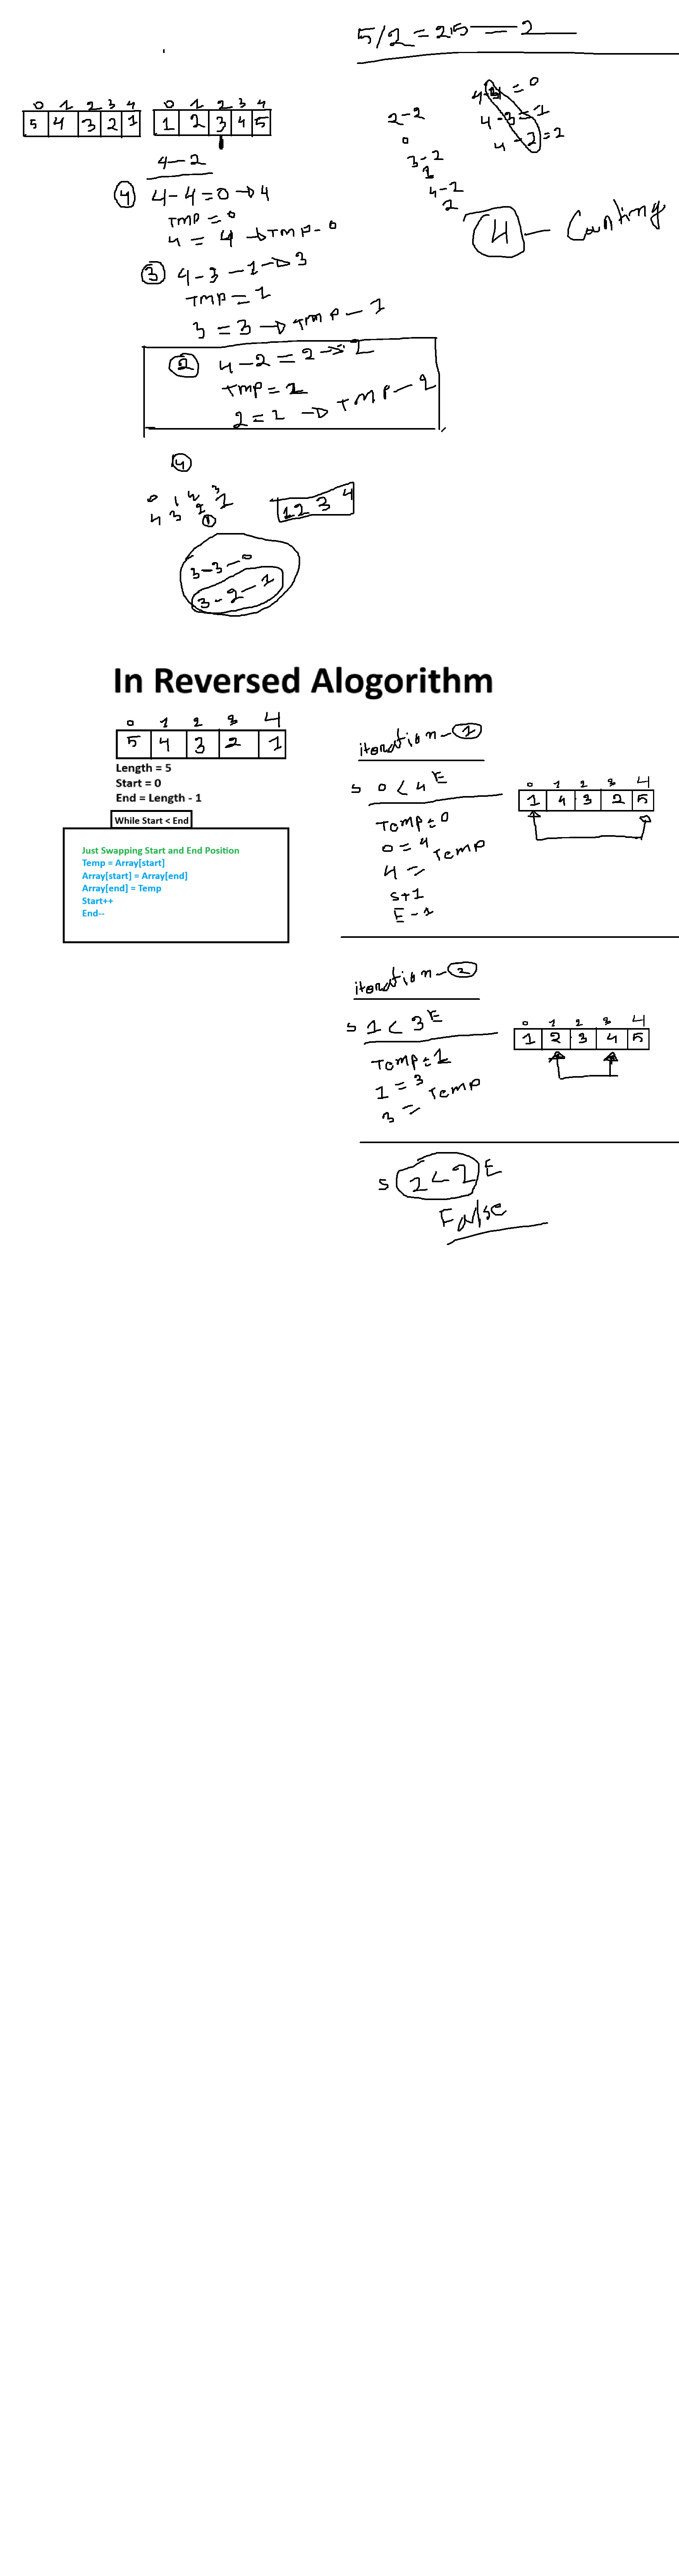 5/2 = 2.5 = 2
0 1 2 3 4
5 4 3 2 1
0 1 2 3 4
1 2 3 4 5
4 - 2
4 4 - 4 = 0 → 4
TMP = 0
4 = 4 → TMP - 0
3 4 - 3 - 1 → 3
TMP = 1
3 = 3 → TMP - 1
2 4 - 2 = 2 → 2
TMP = 2
2 = 2 → TMP - 2
2 - 2
0
3 - 2
1
4 - 2
2
= 0
4 - 3 = 1
4 - 2 = 2
4 - Counting
4
0 1 2 3
4 3 2 1
1
1 2 3 4
3 - 3 - 0
3 - 2 - 1
In Reversed Alogorithm
0 1 2 3 4
5 4 3 2 1
Length = 5
Start = 0
End = Length - 1
While Start < End
Just Swapping Start and End Position
Temp = Array[start]
Array[start] = Array[end]
Array[end] = Temp
Start++
End--
iteration - 1
S 0 < 4 E
Temp = 0
0 = 4
4 = Temp
S+1
E-1
0 1 2 3 4
1 4 3 2 5
iteration - 2
S 1 < 3 E
Temp = 1
1 = 3
3 = Temp
0 1 2 3 4
1 2 3 4 5
S 2 < 2 E
False